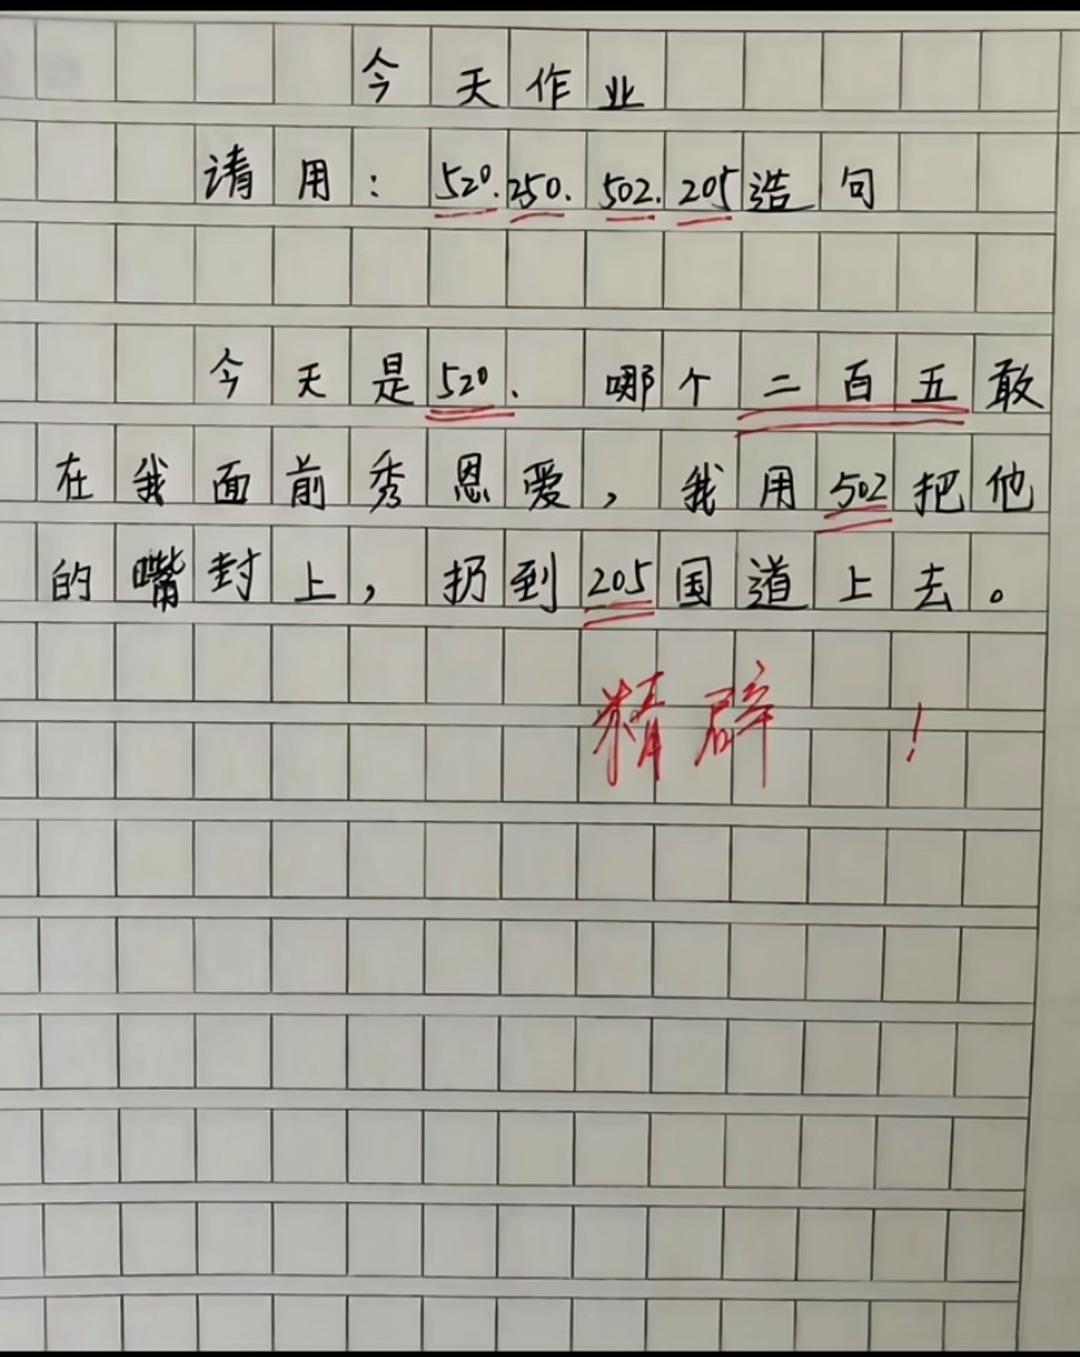 今天作业
请用：520.250.502.205造句
今天是520.哪个二百五敢
在我面前秀恩爱，我用502把他
的嘴封上，扔到205国道上去。
精辟！